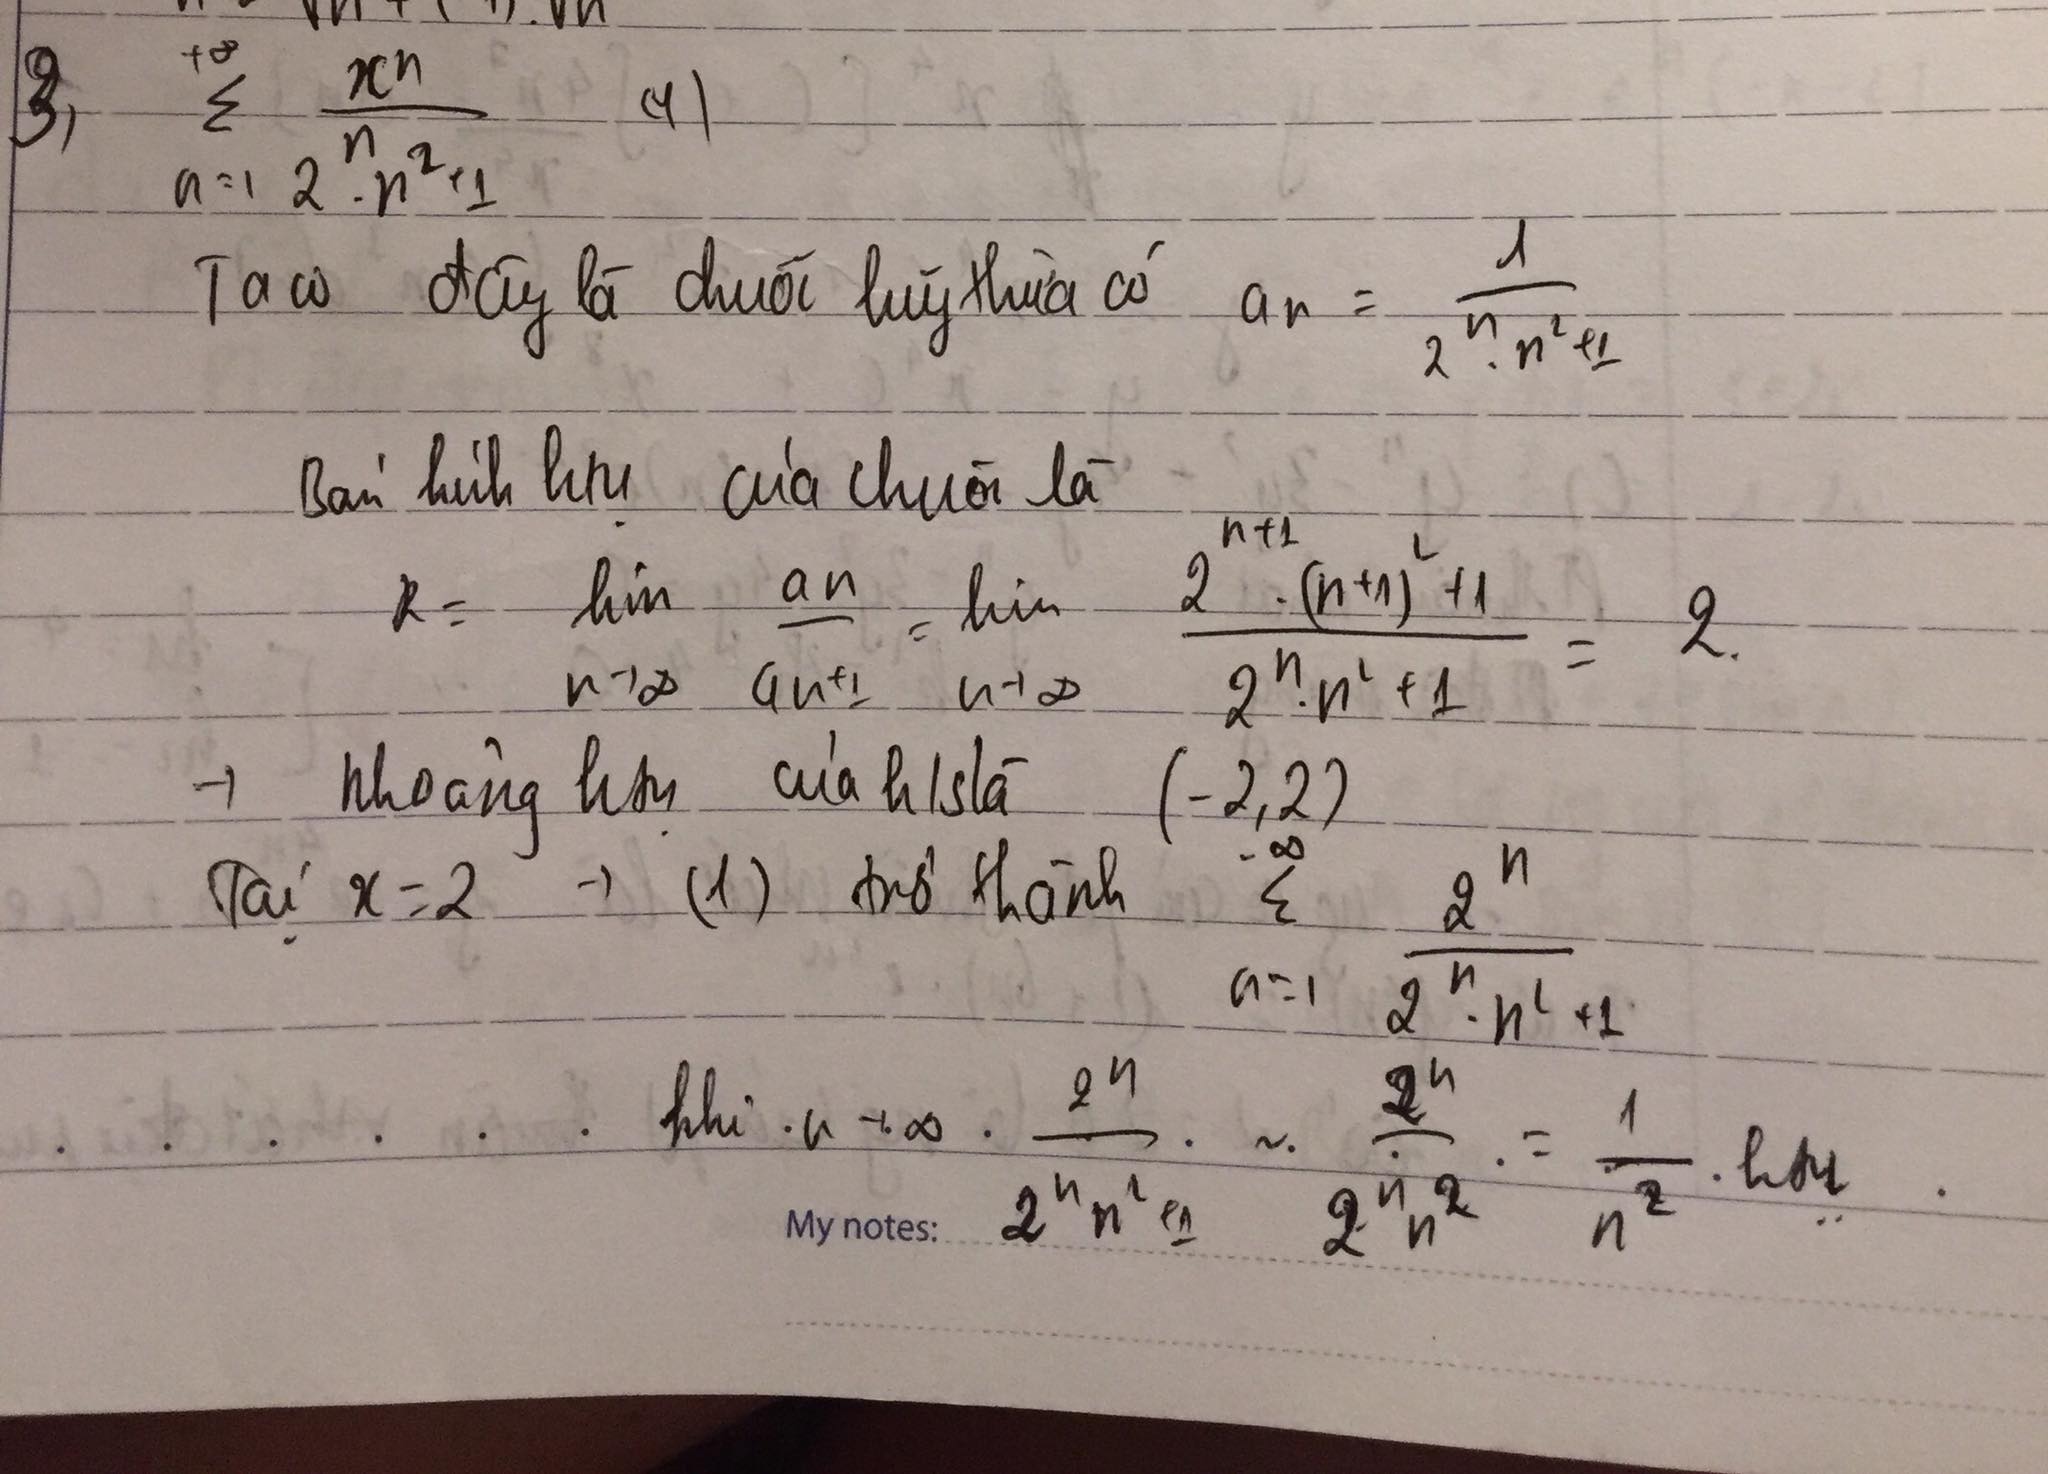 3, +∞ Σ n=1 xⁿ / 2ⁿ.n²+1 (1)
Ta có đây là chuỗi luỹ thừa có an = 1 / 2ⁿ.n²+1
Bán kính htụ của chuỗi là
R = lim n→∞ an / an+1 = lim n→∞ 2ⁿ⁺¹.(n+1)²+1 / 2ⁿ.n²+1 = 2.
→ Khoảng htụ của h/s là (-2,2)
Tại x=2 → (1) trở thành ∞ Σ n=1 2ⁿ / 2ⁿ.n²+1
khi n→∞ 2ⁿ / 2ⁿn²+1 ~ 2ⁿ / 2ⁿn² = 1 / n² htụ
My notes: